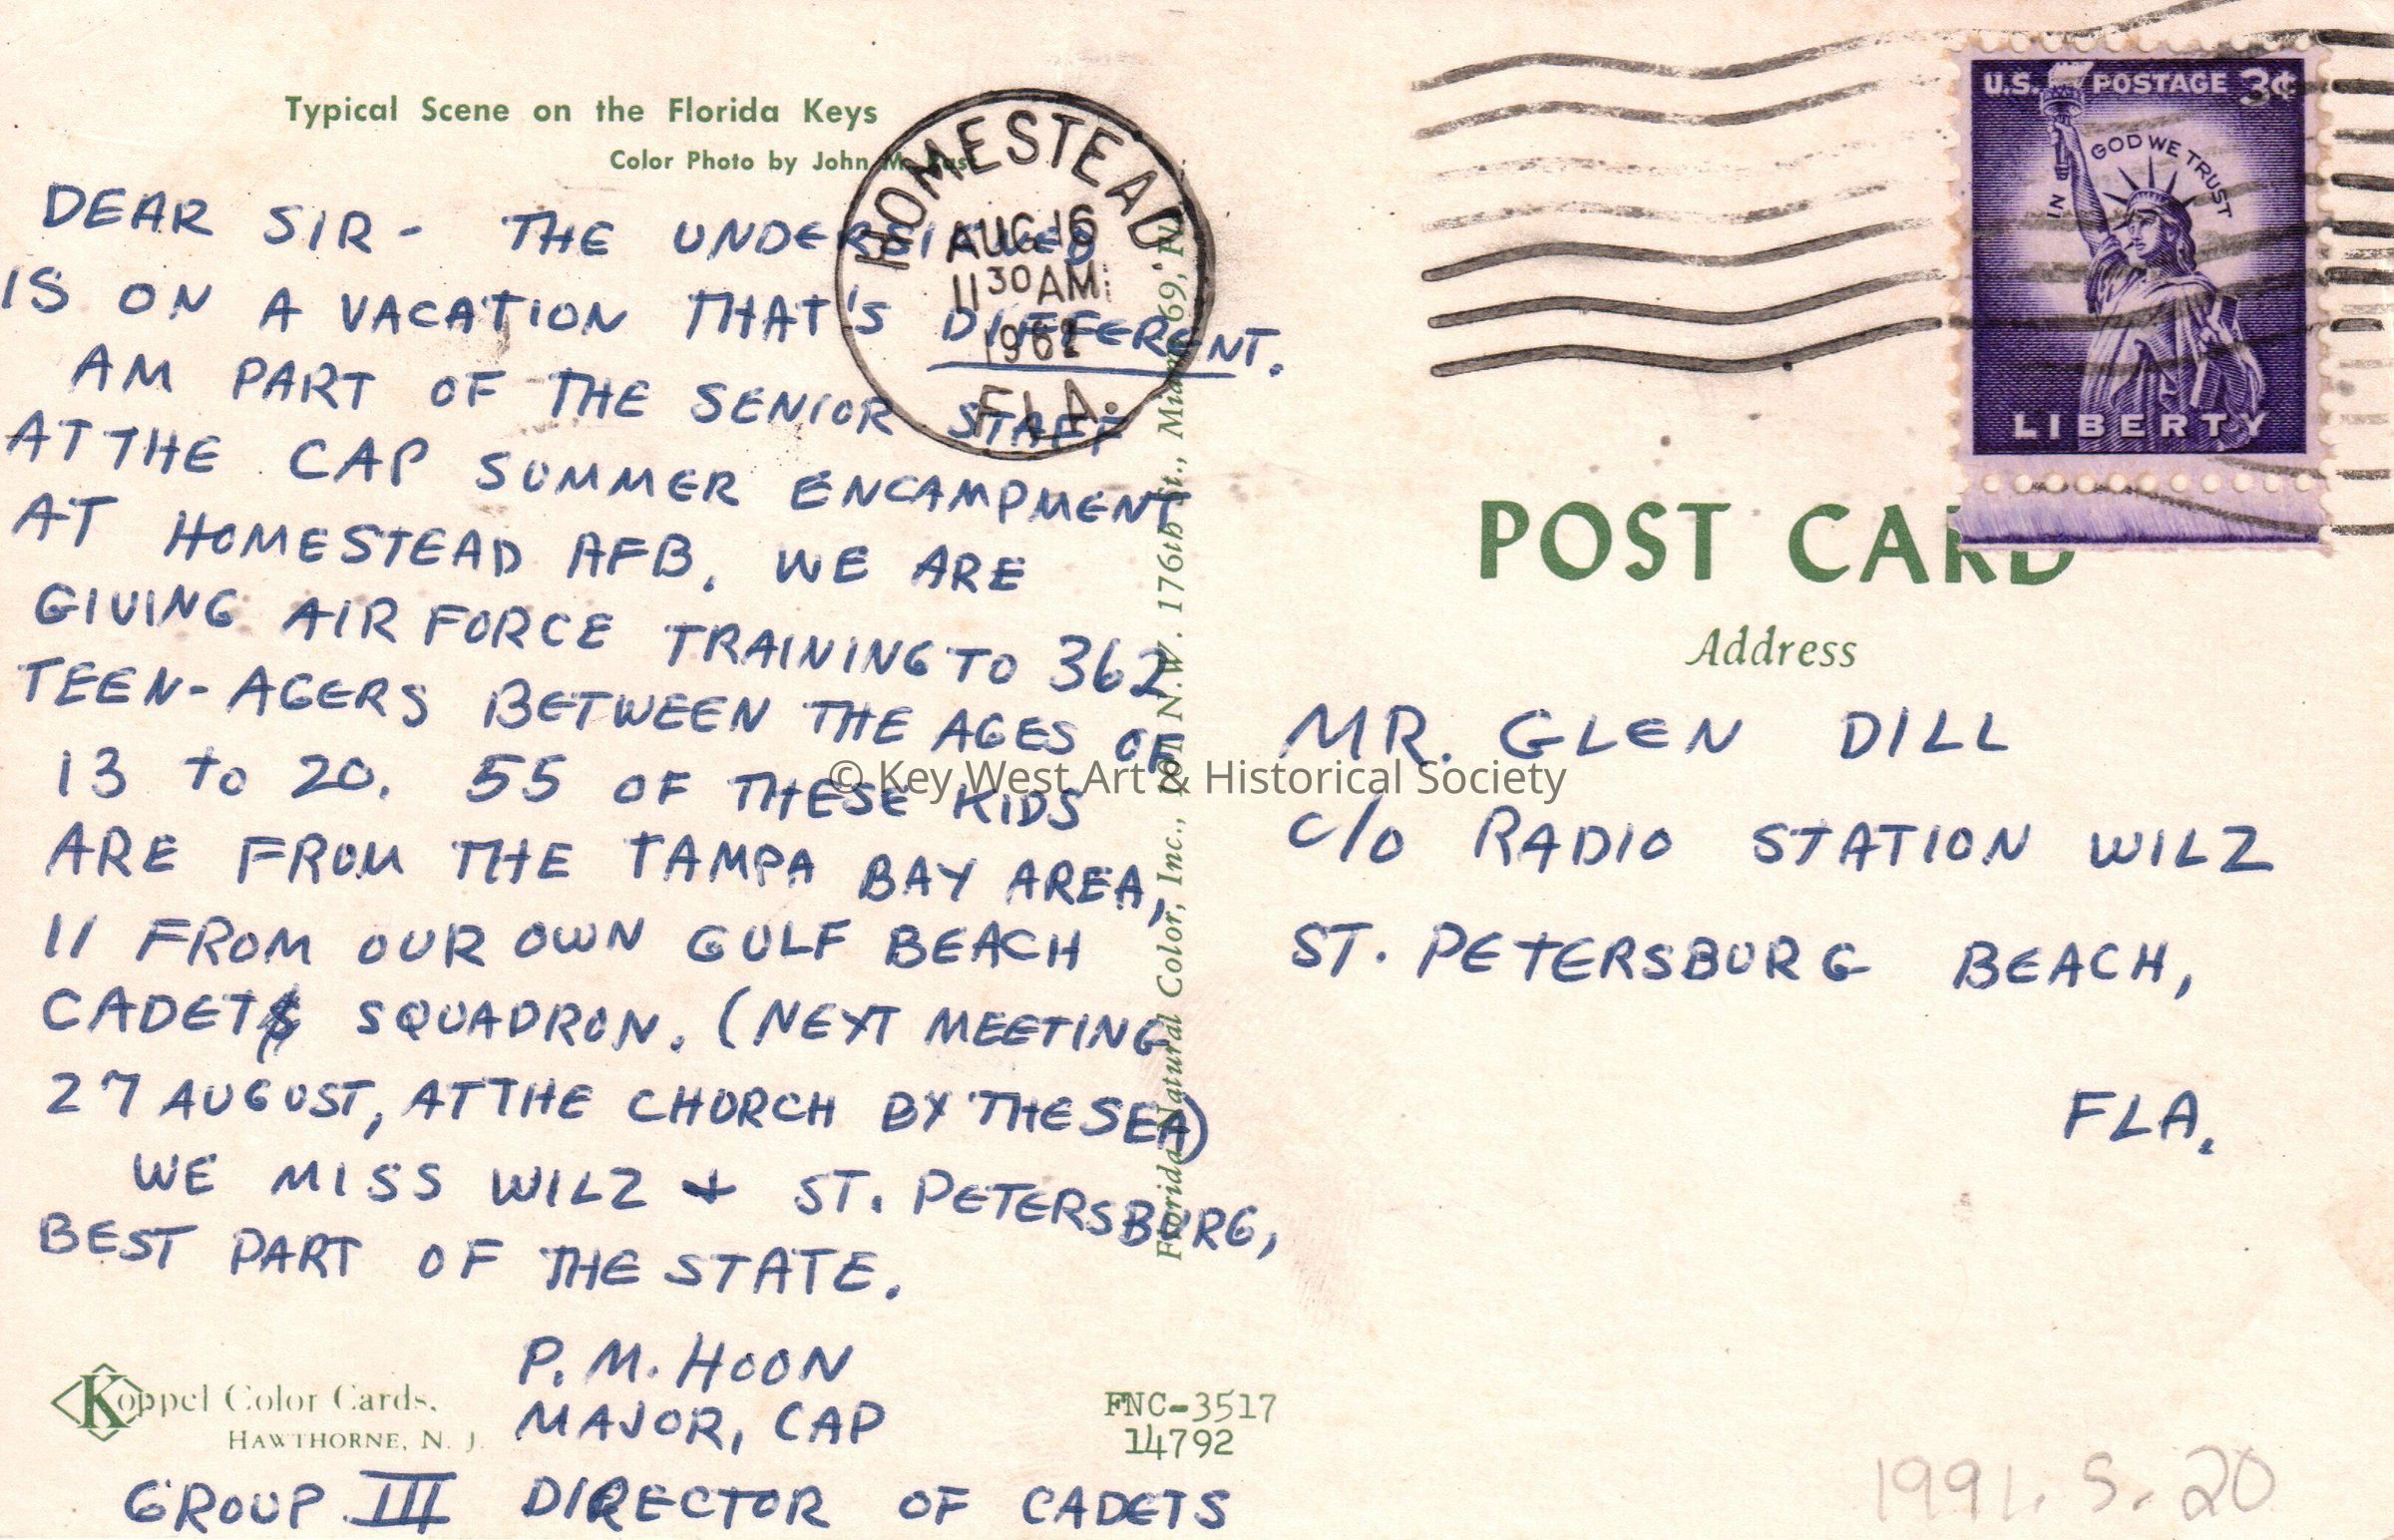 Typical Scene on the Florida Keys
Color Photo by John
HOMESTEAD
AUG 16
11 30 AM
1962
FLA.
DEAR SIR - THE UNDERSIGNED
IS ON A VACATION THAT'S DIFFERENT.
AM PART OF THE SENIOR STAFF
AT THE CAP SUMMER ENCAMPMENT
AT HOMESTEAD AFB. WE ARE
GIVING AIR FORCE TRAINING TO 362
TEEN-AGERS BETWEEN THE AGES OF
13 to 20. 55 OF THESE KIDS
ARE FROM THE TAMPA BAY AREA,
11 FROM OUR OWN GULF BEACH
CADET SQUADRON. (NEXT MEETING
27 AUGUST, AT THE CHURCH BY THE SEA)
WE MISS WILZ + ST. PETERSBURG,
BEST PART OF THE STATE.
P. M. HOON
MAJOR, CAP
GROUP III DIRECTOR OF CADETS
Koppel Color Cards,
HAWTHORNE, N. J.
FNC-3517
14792
Florida Natural Color, Inc., N.W. 176th St., Miami 69,
U.S. POSTAGE 3¢
IN GOD WE TRUST
LIBERTY
POST CARD
Address
MR. GLEN DILL
c/o RADIO STATION WILZ
ST. PETERSBURG BEACH,
FLA.
1991. S. 20
© Key West Art & Historical Society